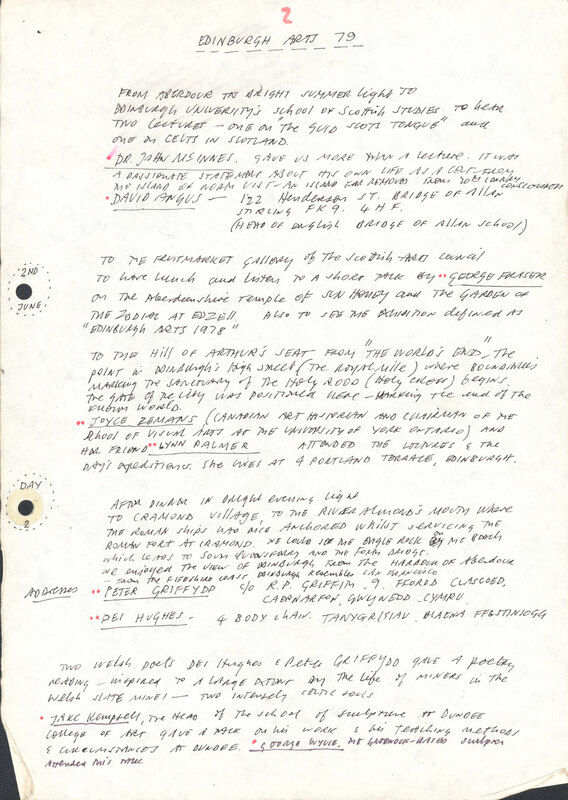 2
EDINBURGH ARTS 79
FROM ABERDOUR IN BRIGHT SUMMER light TO
EDINBURGH UNIVERSITY'S SCHOOL OF SCOTTISH STUDIES TO hear
TWO LECTURES - ONE ON THE GUID SCOTS TONGUE" and
ONE ON CELTS IN SCOTLAND.
DR. JOHN McINNES. GAVE US MORE THAN A LECTURE. IT WAS
A PASSIONATE STATEMENT ABOUT HIS OWN LIFE AS A CELT FROM
THE ISLAND OF NORTH UIST - AN ISLAND FAR REMOVED from 20th century consciousness
DAVID ANGUS - 122 Henderson ST. BRIDGE OF Allan
STIRLING FK9. 4 H.F.
(HEAD OF English BRIDGE OF ALLAN SCHOOL)
TO THE FRUITMARKET GALLERY OF THE SCOTTISH ARTS COUNCIL
TO HAVE LUNCH and LISTEN TO A SHORT TALK By GEORGE FRASER
2ND
JUNE
on the Aberdeenshire Temple OF SUN HONEY and THE GARDEN OF
THE ZODIAC AT EDZELL. ALSO TO SEE THE EXHIBITION defined AS
"EDINBURGH ARTS 1978"
TO THE Hill OF ARTHUR'S SEAT FROM "THE WORLD'S END", The
POINT in EDINBURGH'S High STREET (The ROYAL Mile) where BOUNDARIES
MARKING THE SANCTUARY OF THE HOLY ROOD (HOLY CROSS) begins.
THE GATE OF THE CITY WAS POSITIONED HERE - MARKING the end of the
known world.
JOYCE ZEMANS (CANADIAN ART HISTORIAN AND CHAIRMAN OF THE
School OF VISUAL ARTS AT THE UNIVERSITY OF YORK ONTARIO) AND
HER FRIEND LYNN PALMER ATTENDED THE LECTURES & the
DAY'S expeditions. She lives AT 4 PORTLAND TERRACE, EDINBURGH.
DAY
2
AFTER DINNER in bright evening light
TO CRAMOND VILLAGE, TO THE RIVER ALMOND'S MOUTH where
THE ROMAN SHIPS HAD ONCE ANCHORED WHILST SERVICING THE
ROMAN FORT AT CRAMOND. WE COULD SEE THE EAGLE ROCK ON THE BEACH
which LEADS TO SOUTH QUEENSFERRY AND THE FORTH BRIDGE.
We enjoyed THE VIEW OF EDINBURGH FROM THE HARBOUR OF Aberdour
- FROM THE FIFESHIRE COAST, EDINBURGH RESEMBLES SAN FRANCISCO
ADDRESSES PETER GRIFFYDD c/o R.P. GRIFFITH. 9, FFORDD CLASCOED,
CAERNARFON, GWYNEDD, CYMRU
DEI HUGHES - 4 BODY CHAIN. TANYGRISIAU. BLAENA FFESTINIOGG
TWO WELSH POETS DEI HUGHES & PETER GRIFFYDD GAVE A POETRY
READING - INSPIRED TO A LARGE EXTENT BY THE LIFE OF MINERS IN THE
WELSH SLATE MINES - TWO INTENSELY CELTIC SOULS
JAKE KEMPSELL, THE HEAD OF THE SCHOOL OF SCULPTURE AT DUNDEE
COLLEGE OF ART GAVE A TALK ON his WORK & his TEACHING METHODS
& CIRCUMSTANCES AT DUNDEE. GEORGE WYLIE, THE GREENOCK-BASED sculptor
Attended this TALK